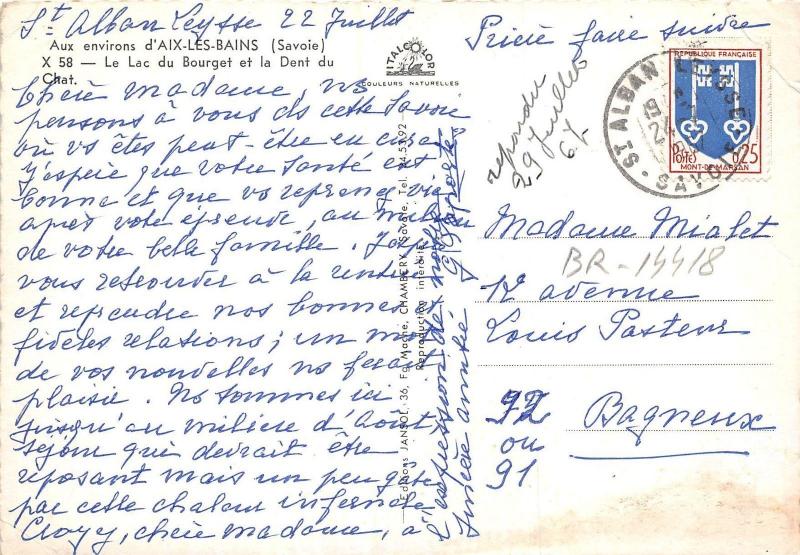 St Alban Leysse 22 Juillet
Aux environs d'AIX-LES-BAINS (Savoie)
X 58 — Le Lac du Bourget et la Dent du
Chat.
ITALCOLOR
COULEURS NATURELLES
Chère madame, ns
pensons à vous ds cette Savoie
où vs êtes peut-être en cure
J'espère que votre santé est
bonne et que vs reprenez vie
après votre épreuve, au milieu
de votre belle famille. J'espère
vous retrouver à la rentrée
et reprendre nos bonnes
fidèles relations ; un mot
de vos nouvelles ns ferait
plaisir. Ns sommes ici
jusqu'au milieu d'Août,
séjour qui devrait être
reposant mais un peu gâté
par cette chaleur infernale
Croyez, chère madame, à
l'expression de notre
sincère amitié
Editions JANSOL, 36, Fg Maché, CHAMBERY (Savoie) Tel. 34.53.92
Reproduction interdite
Prière faire suivre
répondu
29 Juillet
67
REPUBLIQUE FRANÇAISE
POSTES 0,25
MONT-DE-MARSAN
ST ALBAN LEYSSE
SAVOIE
Madame Mialet
BR-14418
12 avenue
Louis Pasteur
92
ou
91
Bagneux